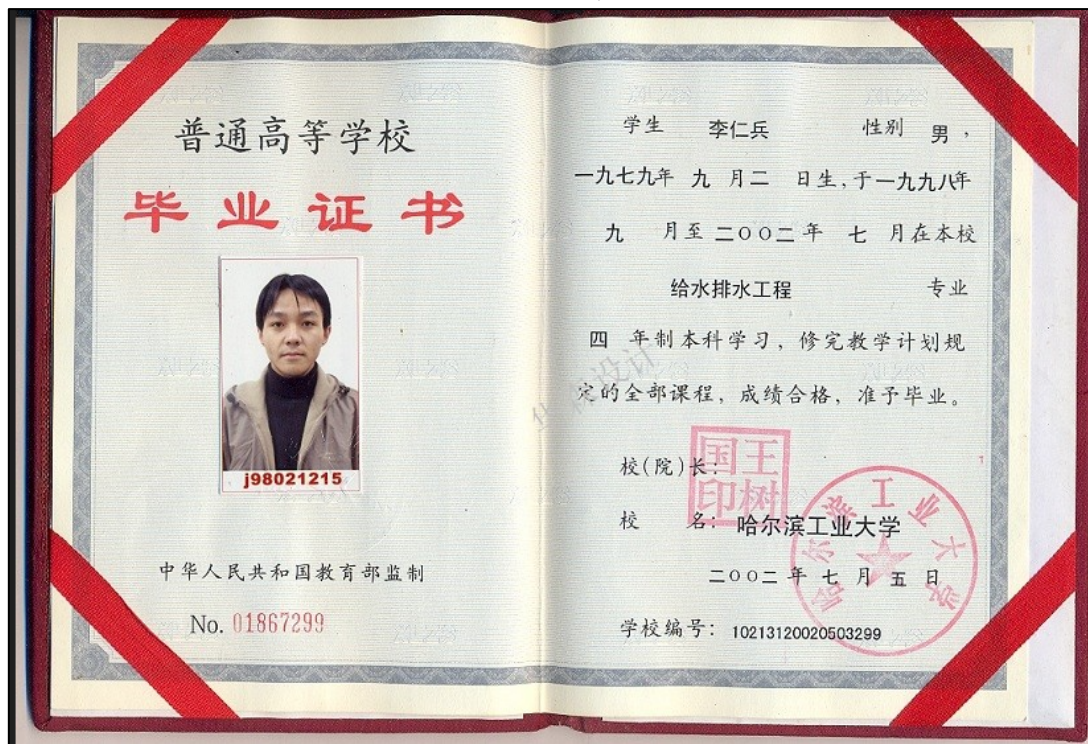 普通高等学校
毕业证书
j98021215
中华人民共和国教育部监制
No. 01867299
学生 李仁兵 性别 男，
一九七九年 九 月二 日生，于一九九八年
九 月至 二〇〇二 年 七 月在本校
给水排水工程 专业
四 年制本科学习，修完教学计划规
定的全部课程，成绩合格，准予毕业。
校(院)长：
国王
印树
校 名： 哈尔滨工业大学
哈尔滨工业大学
二〇〇二 年 七 月 五 日
学校编号： 10213120020503299